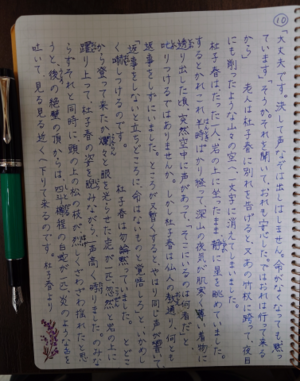 10
「大丈夫です。決して声なぞは出しはしません。命がなくなっても黙っ
ています」「そうか。それを聞いて、おれも安心した。ではおれは行って来る
から」 老人は杜子春に別れを告げると、又あの竹杖に跨って、夜目
にも削ったような山々の空へ、一文字に消えてしまいました。
杜子春はたった一人、岩の上に坐った儘、静に星を眺めていました。
するとかれこれ半時ばかり経って、深山の夜気が肌寒く薄い着物に
透り出した頃、突然空中に声があって、「そこにいるのは何者だ」と、
叱りつけるではありませんか。しかし杜子春は仙人の教通り、何とも
返事をしずにいました。ところが又暫くすると、やはり同じ声が響いて、
「返事をしないと立ちどころに、命はないものと覚悟しろ」と、いかめし
く嚇しつけるのです。 杜子春は勿論黙っていました。 と、どこ
から登って来たか、爛々と眼を光らせた虎が一匹、忽然と岩の上に
躍り上って、杜子春の姿を睨みながら、一声高く哮りました。のみな
らずそれと同時に、頭の上の松の枝が、烈しくざわざわ揺れたと思
うと、後の絶壁の頂からは、四斗樽程の白蛇が一匹、炎のような舌を
吐いて、見る見る近くへ下りて来るのです。杜子春より